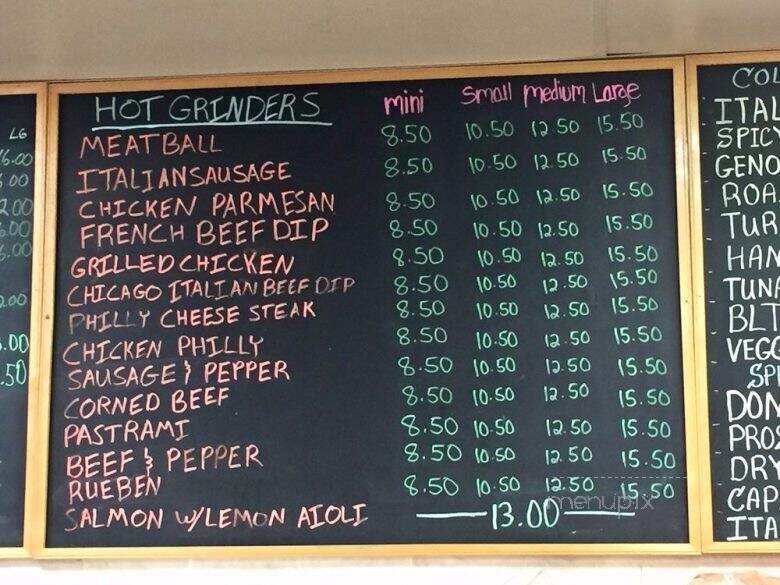 HOT GRINDERS mini Small medium Large
MEATBALL 8.50 10.50 12.50 15.50
ITALIAN SAUSAGE 8.50 10.50 12.50 15.50
CHICKEN PARMESAN 8.50 10.50 12.50 15.50
FRENCH BEEF DIP 8.50 10.50 12.50 15.50
GRILLED CHICKEN 8.50 10.50 12.50 15.50
CHICAGO ITALIAN BEEF DIP 8.50 10.50 12.50 15.50
PHILLY CHEESE STEAK 8.50 10.50 12.50 15.50
CHICKEN PHILLY 8.50 10.50 12.50 15.50
SAUSAGE & PEPPER 8.50 10.50 12.50 15.50
CORNED BEEF 8.50 10.50 12.50 15.50
PASTRAMI 8.50 10.50 12.50 15.50
BEEF & PEPPER 8.50 10.50 12.50 15.50
RUEBEN 8.50 10.50 12.50 15.50
SALMON W/LEMON AIOLI 13.00
menupix
LG
6.00
.00
.00
6.00
6.00
.00
.00
.50
COL
ITAL
SPICY
GENO
ROA
TUR
HAM
TUNA
BLT
VEGG
SPE
DON
PROS
DRY
CAP
ITA